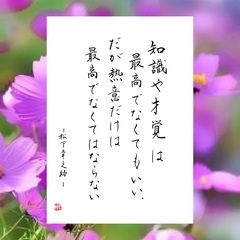 知識や才覚は
最高でなくてもいい、
だが熱意だけは
最高でなくてはならない
-松下幸之助-